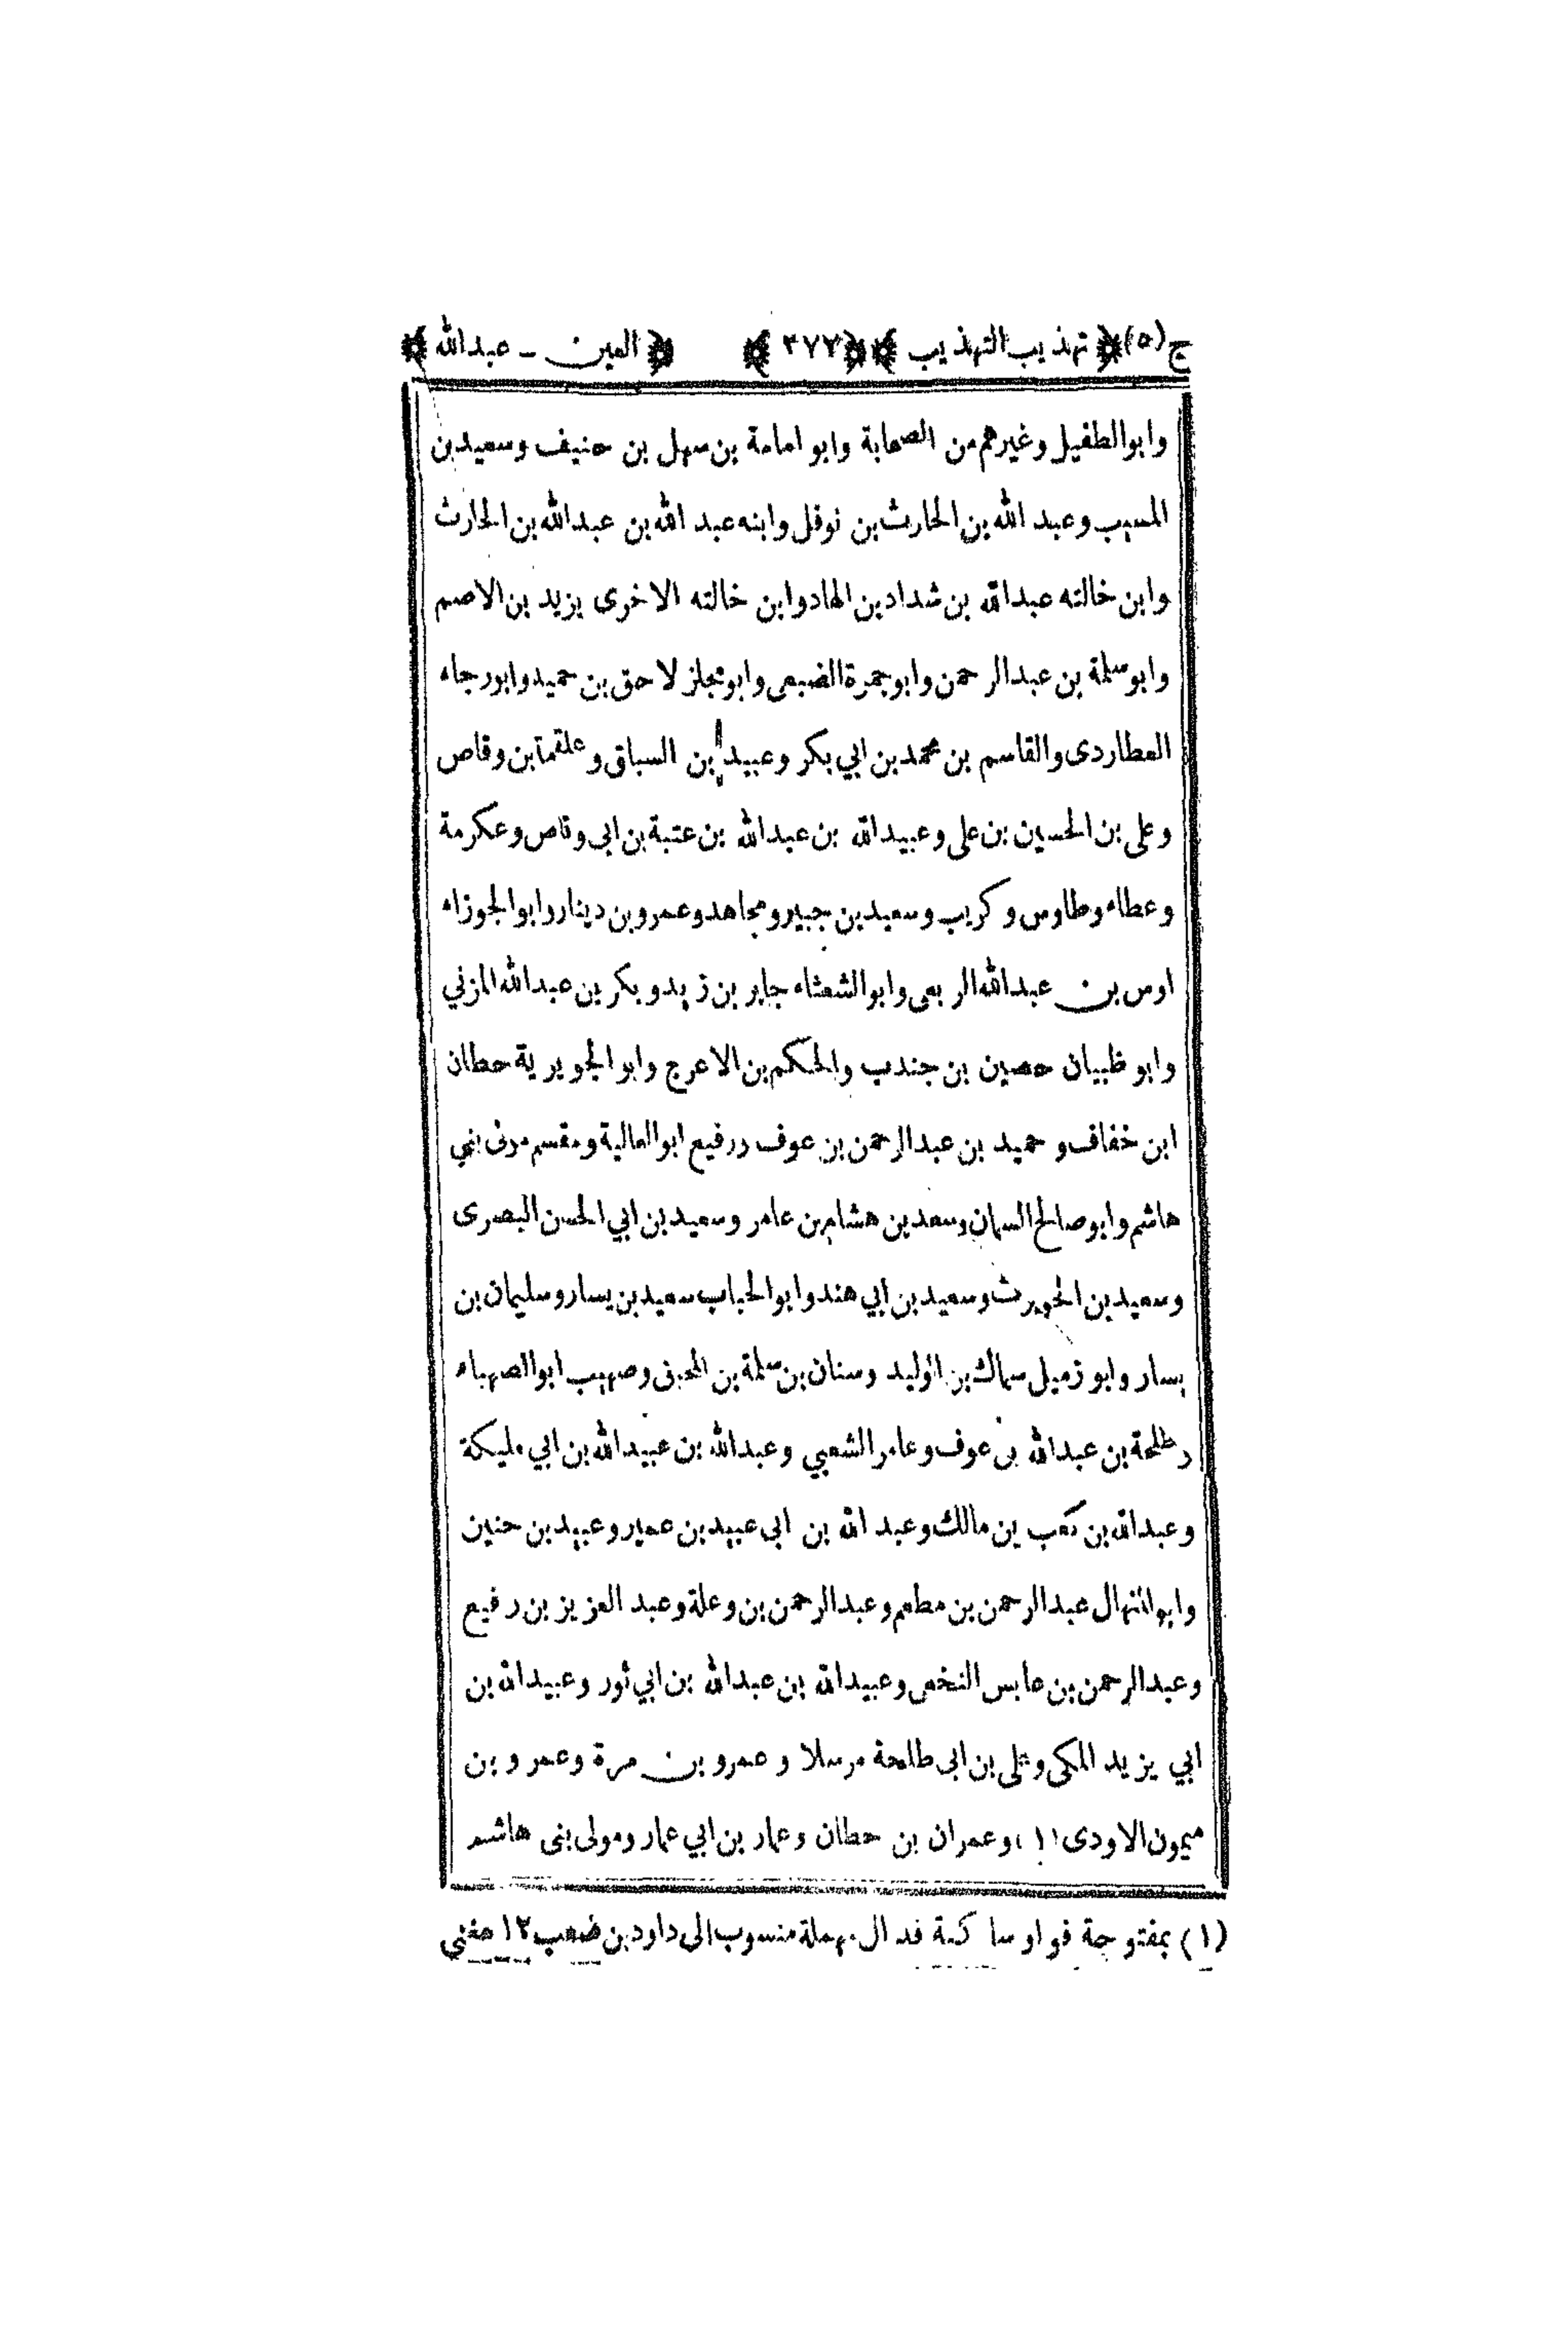 ج (٥) ﴿ تهذيب التهذيب ﴾ ﴿ ٢٧٧ ﴾ ﴿ العين ـ عبدالله ﴾
وابوالطفيل وغيرهم من الصحابة وابو امامة بن سهل بن حنيف وسعيد بن
المسيب وعبد الله بن الحارث بن نوفل وابنه عبد الله بن عبدالله بن الحارث
وابن خالته عبدالله بن شداد بن الهاد وابن خالته الاخرى يزيد بن الاصم
وابو سلمة بن عبدالرحمن وابو جمرة الضبعى وابو مجلز لاحق بن حميد وابورجاء
العطاردى والقاسم بن محمد بن ابي بكر وعبيد بن السباق وعلقمة بن وقاص
وعلى بن الحسين بن على وعبيدالله بن عبدالله بن عتبة بن ابى وقاص وعكرمة
وعطاء وطاوس وكريب وسعيد بن جبير ومجاهد وعمرو بن دينار وابو الجوزاء
اوس بن عبدالله الربعى وابو الشعثاء جابر بن زيد وبكر بن عبدالله المزني
وابو ظبيان حصين بن جندب والحكم بن الاعرج وابو الجويرية حطان
ابن خفاف وحميد بن عبدالرحمن بن عوف ورفيع ابو العالية ومقسم مولى بنى
هاشم وابو صالح السمان وسعد بن هشام بن عامر وسعيد بن ابي الحسن البصرى
وسعيد بن الحويرث وسعيد بن ابي هند وابو الحباب سعيد بن يسار وسليمان بن
يسار وابو زميل سماك بن الوليد وسنان بن سلمة بن المحبق وصهيب ابو الصهباء
وطلحة بن عبدالله بن عوف وعامر الشعبي وعبدالله بن عبيدالله بن ابي مليكة
وعبدالله بن كعب بن مالك وعبد الله بن ابى عبيد بن عمير وعبيد بن حنين
وابو المنهال عبدالرحمن بن مطعم وعبدالرحمن بن وعلة وعبد العزيز بن رفيع
وعبدالرحمن بن عابس النخعى وعبيدالله بن عبدالله بن ابي ثور وعبيدالله بن
ابي يزيد المكى وعلى بن ابى طلحة مرسلا وعمرو بن مرة وعمرو بن
ميمون الاودى (١) وعمران بن حطان وعمار بن ابي عمار ومولى بنى هاشم
(١) بمفتوحة فواو ساكنة فدال مهملة منسوب الى داود بن صعب ١٢ مغني